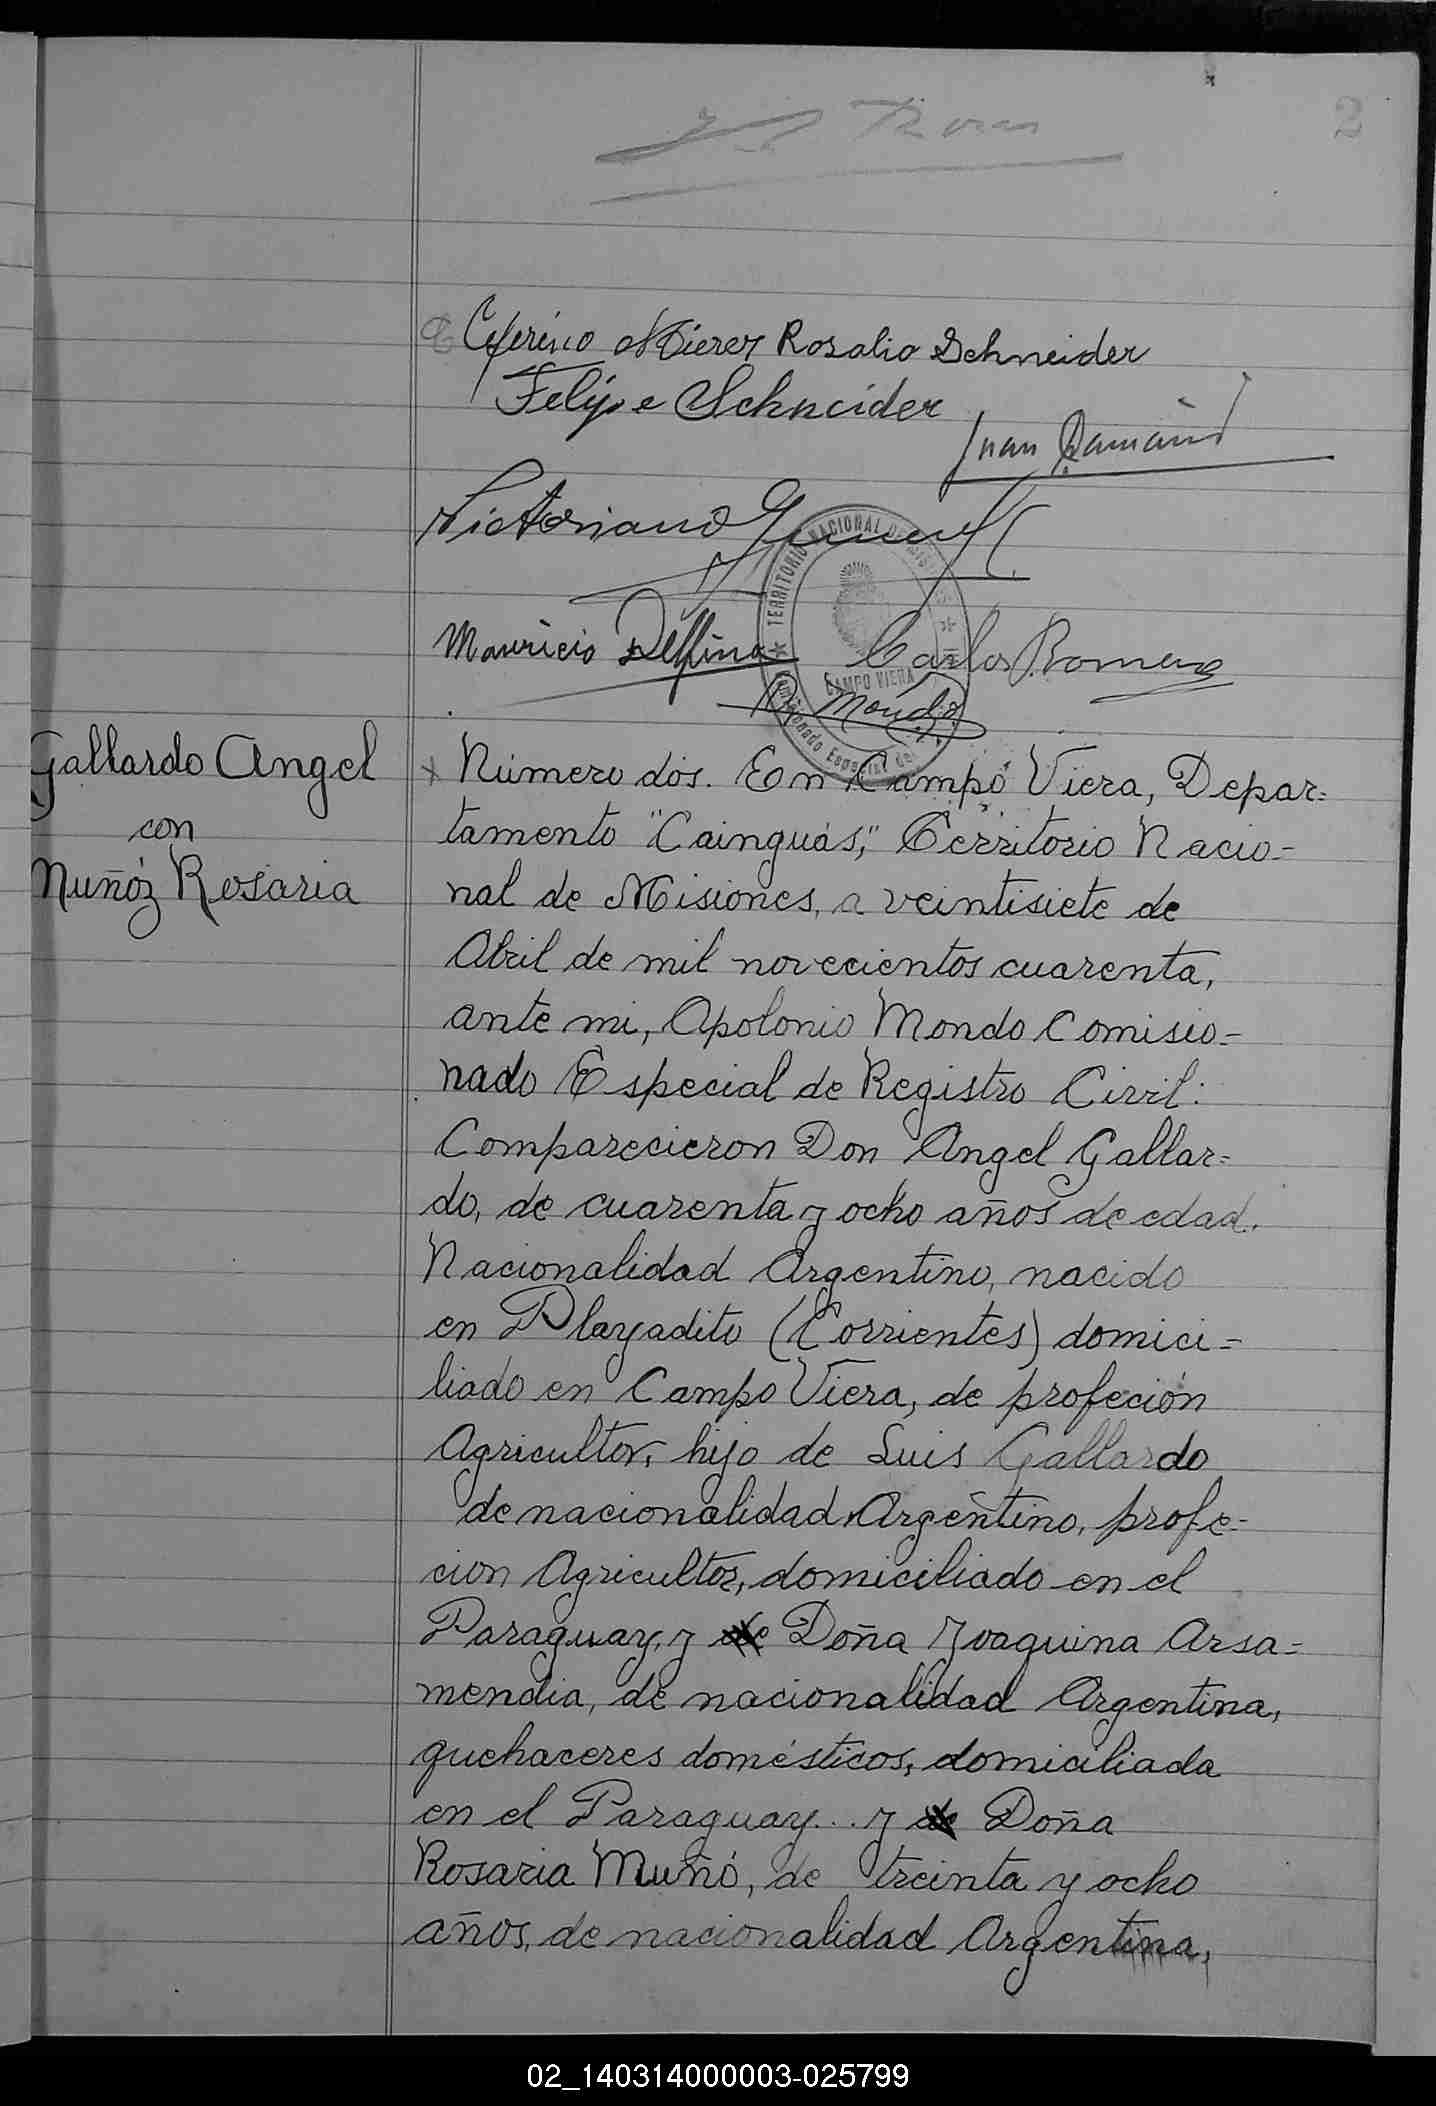 2
Ceferino Mierez Rosalio Schneider
Felipe Schneider
Juan Damiani
Victoriano
TERRITORIO NACIONAL DE MISIONES
Mauricio Delfino Carlos Romero
CAMPO VIERA
A. Mondo
Comisionado Especial del
Gallardo Angel
con
Nuñóz Rosaria
Número dos. En Campo Viera, Depar=
tamento "Cainguás," Territorio Nacio=
nal de Misiones, a veintisiete de
Abril de mil novecientos cuarenta,
ante mi, Apolonio Mondo Comisio=
nado Especial de Registro Civil:
Comparecieron Don Angel Gallar=
do, de cuarenta y ocho años de edad.
Nacionalidad Argentino, nacido
en Playadito (Corrientes) domici=
liado en Campo Viera, de profeción
Agricultor, hijo de Luis Gallardo
de nacionalidad Argentino, profe=
cion Agricultor, domiciliado en el
Paraguay, y de Doña Joaquina Arsa=
mendia, de nacionalidad Argentina,
quehaceres domésticos, domiciliada
en el Paraguay... y de Doña
Rosaria Muñó, de treinta y ocho
años, de nacionalidad Argentina,
02_140314000003-025799